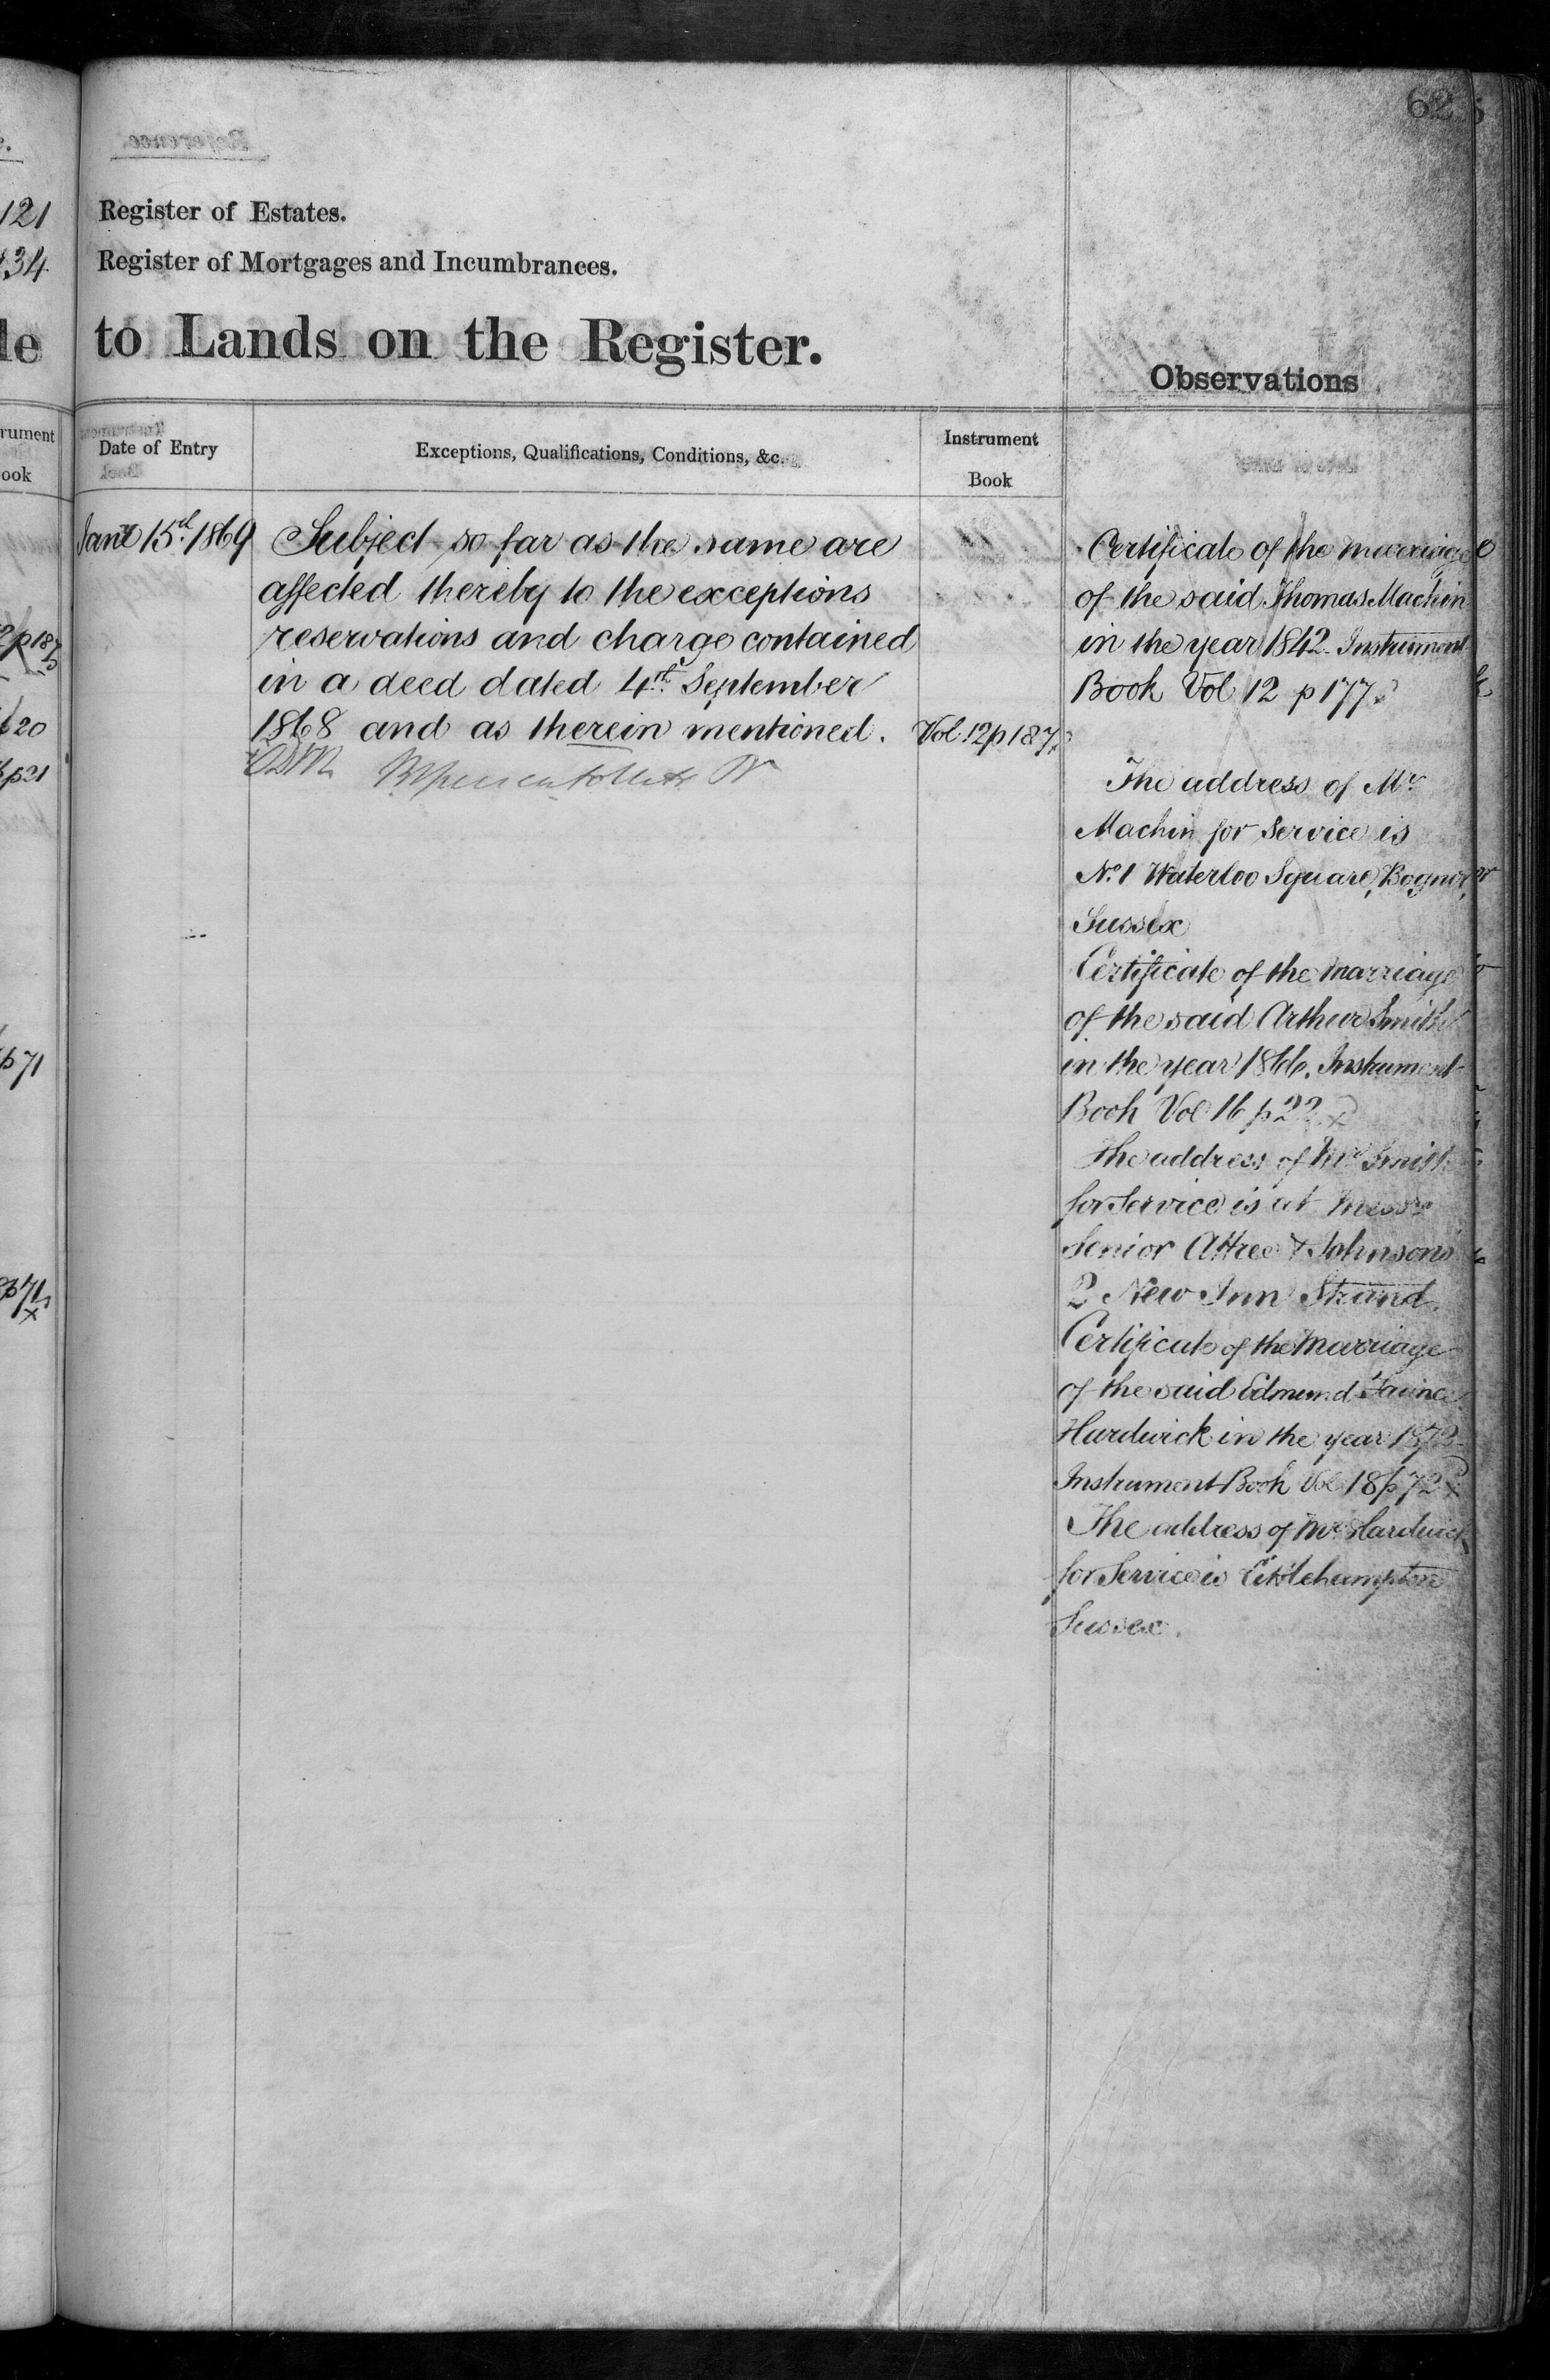 62
121
134
le
rument
ook
p187
620
p21
p71
p71
Register of Estates.
Register of Mortgages and Incumbrances.
to Lands on the Register.
Observations
Date of Entry
Exceptions, Qualifications, Conditions, &c.
Instrument
Book
15th 1869 Subject so far as the same are
affected thereby to the exceptions
reservations and charge contained
in a deed dated 4th September
1868 and as therein mentioned. Vol. 12 p 187
Certificate of the marriage
of the said Thomas Machin
in the year 1842. Instrument
Book Vol 12 p 177
The address of Mr
Machin for Service is
No. 1 Waterloo Square, Bognor,
Sussex
Certificate of the marriage
of the said Arthur Smith
in the year 1866. Instrument
Book Vol 16 p 22
The address of Mr Smith
for Service is at Messrs
Senior Attree & Johnsons
2 New Inn Strand.
Certificate of the Marriage
of the said Edmund
Hardwick in the year 1873
Instrument Book Vol 18 p 72
The address of Mr Hardwick
for Service is Littlehampton
Sussex.